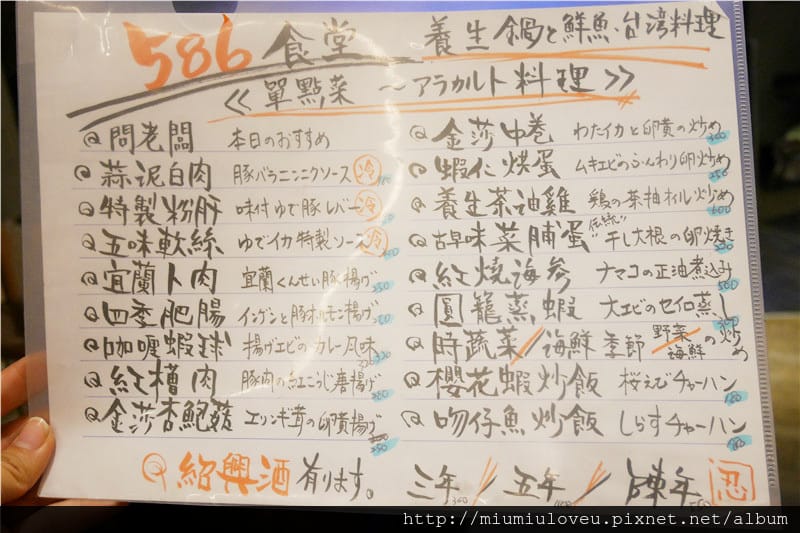 586 食堂 養生鍋と鮮魚、台湾料理
≪ 單點菜 ～アラカルト料理 ≫
問老闆 本日のおすすめ
蒜泥白肉 豚バラニンニクソース 冷
特製粉肝 味付ゆで豚レバー 冷
五味軟絲 ゆでイカ特製ソース 冷
宜蘭卜肉 宜蘭くんせい豚揚げ 250
四季肥腸 インゲンと豚ホルモン揚げ
咖哩蝦球 揚げエビのカレー風味
紅槽肉 豚肉の紅こうじ唐揚げ
金莎杏鮑菇 エリンギ茸の卵黄揚げ 250
金莎中卷 わたイカと卵黄の炒め 300
蝦仁烘蛋 ムキエビのふんわり卵炒め 250
養生茶油雞 鶏の茶油オイル炒め 600
古早味菜脯蛋 伝統 干し大根の卵焼き 200
紅燒海参 ナマコの正油煮込み 500
圓籠蒸蝦 大エビのセイロ蒸し
時蔬菜/海鮮 季節 野菜/海鮮 の炒め
櫻花蝦炒飯 桜えびチャーハン 180
吻仔魚炒飯 しらすチャーハン
紹興酒 有ります。 三年 / 五年 / 陳年 忍
http://miumiuloveu.pixnet.net/album